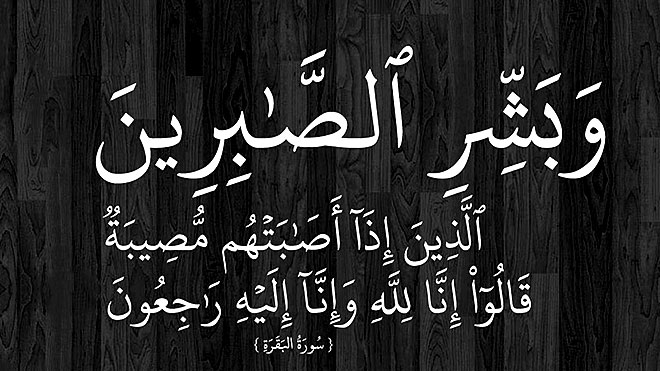 وَبَشِّرِ ٱلصَّـٰبِرِينَ
ٱلَّذِينَ إِذَآ أَصَـٰبَتْهُم مُّصِيبَةٌۭ
قَالُوٓا۟ إِنَّا لِلَّهِ وَإِنَّآ إِلَيْهِ رَٰجِعُونَ
{ سُورَةُ البَقَرَةِ }